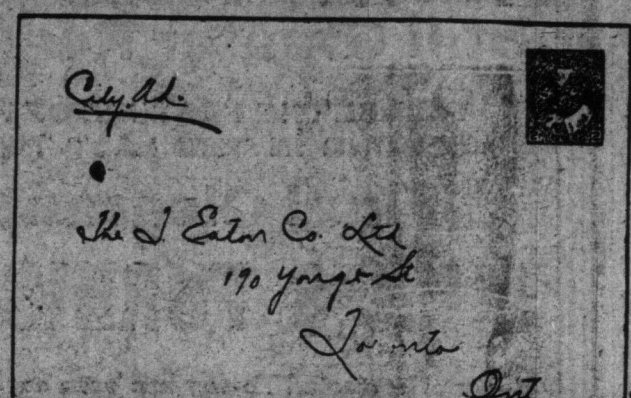 City Ad.
The T. Eaton Co. Ltd
190 Yonge St
Toronto
Ont